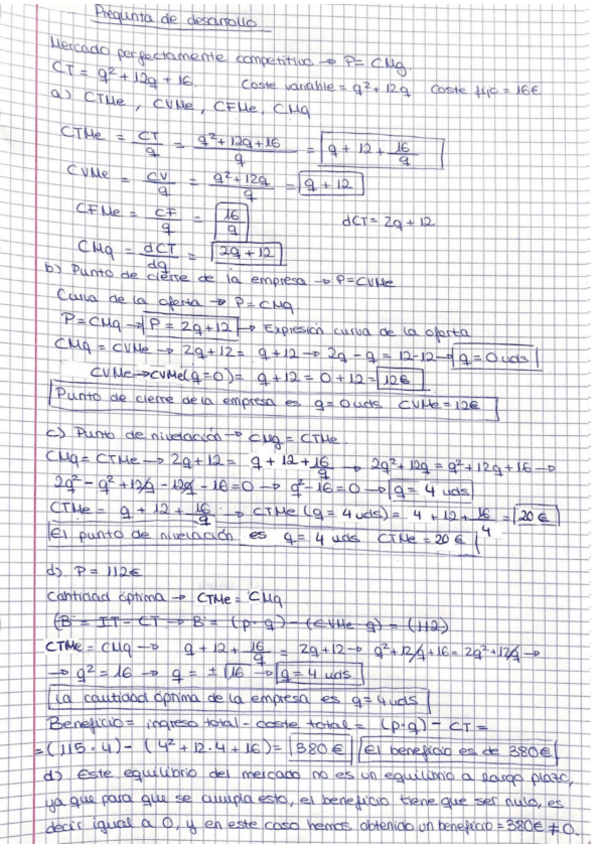 Pregunta de desarrollo
Mercado perfectamente competitivo → P = CMg.
CT = q² + 12q + 16. Coste variable = q² + 12q Coste fijo = 16€
a) CTMe, CVMe, CFMe, CMg
CTMe = CT/q = (q² + 12q + 16)/q = q + 12 + 16/q
CVMe = CV/q = (q² + 12q)/q = q + 12
CFMe = CF/q = 16/q dCT = 2q + 12
CMg = dCT/dq = 2q + 12
b) Punto de cierre de la empresa → P = CVMe
Curva de la oferta → P = CMg
P = CMg → P = 2q + 12 → Expresión curva de la oferta
CMg = CVMe → 2q + 12 = q + 12 → 2q - q = 12 - 12 → q = 0 uds
CVMe → CVMe (q = 0) = q + 12 = 0 + 12 = 12€
Punto de cierre de la empresa es q = 0 uds CVMe = 12€
c) Punto de nivelación → CMg = CTMe
CMg = CTMe → 2q + 12 = q + 12 + 16/q → 2q² + 12q = q² + 12q + 16 →
2q² - q² + 12q - 12q - 16 = 0 → q² - 16 = 0 → q = 4 uds
CTMe = q + 12 + 16/q → CTMe (q = 4 uds) = 4 + 12 + 16/4 = 20€
El punto de nivelación es q = 4 uds CTMe = 20€
d) P = 112€
Cantidad óptima → CTMe = CMg
(B = IT - CT → B = (p·q) - (CVMe·q) = (112)
CTMe = CMg → q + 12 + 16/q = 2q + 12 → q² + 12q + 16 = 2q² + 12q →
→ q² = 16 → q = ± √16 → q = 4 uds
La cantidad óptima de la empresa es q = 4 uds
Beneficio = ingreso total - coste total = (p·q) - CT =
= (115·4) - (4² + 12·4 + 16) = 380€ El beneficio es de 380€
d) Este equilibrio del mercado no es un equilibrio a largo plazo,
ya que para que se cumpla esto, el beneficio tiene que ser nulo, es
decir igual a 0, y en este caso hemos obtenido un beneficio = 380€ ≠ 0.